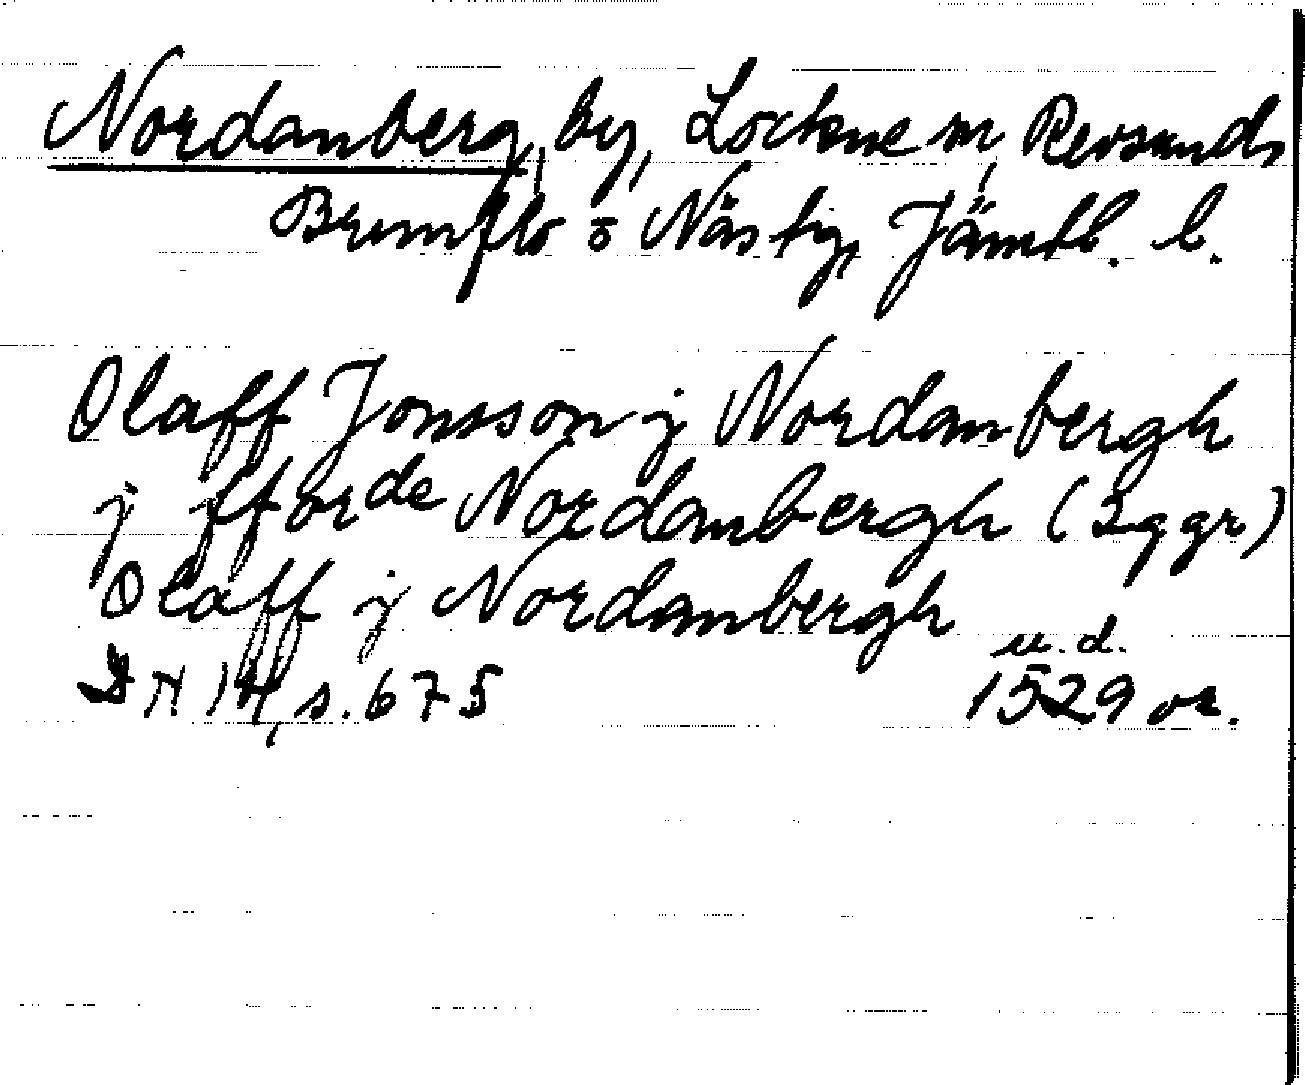 Nordanberg, by, Lockne sn, Revsunds
Brunflo o Näs tg, Jämtl. l.
Olaff Jonsson j Nordanbergh
j fforde Nordanbergh (2 ggr)
Olaff j Nordanbergh
u.d.
DN 14, s. 675 1529 or.